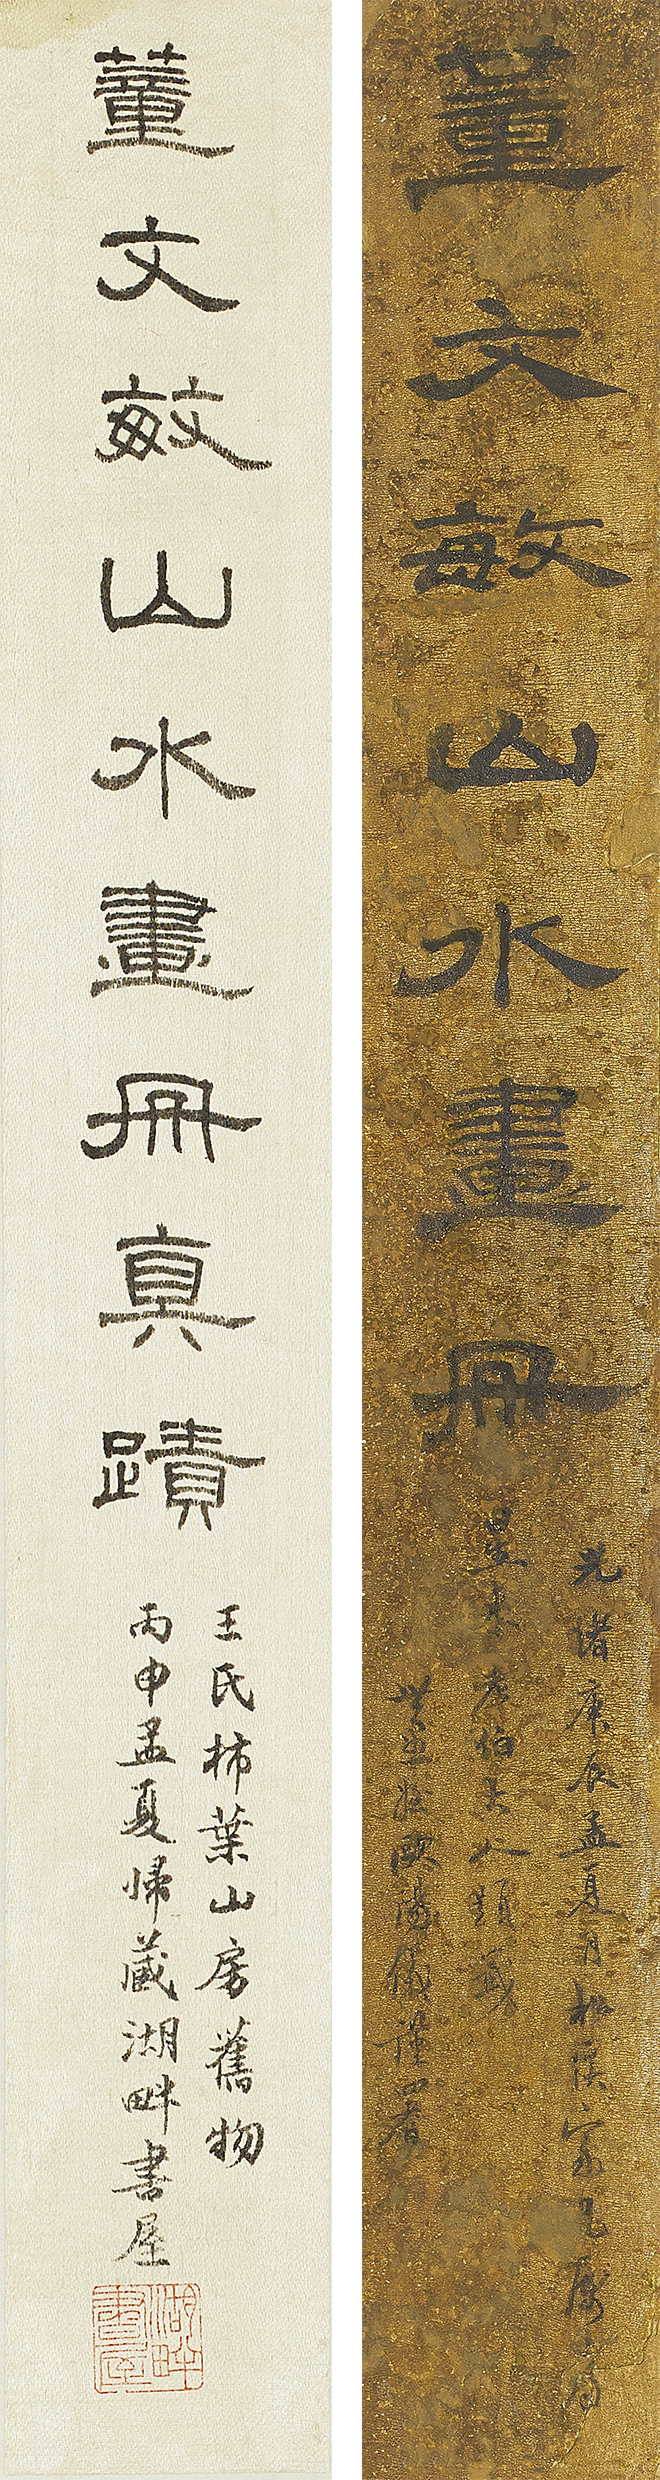 董文敏山水畫冊
光緒庚辰孟夏月松溪家兄屬
星老伯大人題籤
歐陽儀謹署
董文敏山水畫冊真蹟
王氏柿葉山房舊物
丙申孟夏歸藏湖畔書屋
湖畔
書屋